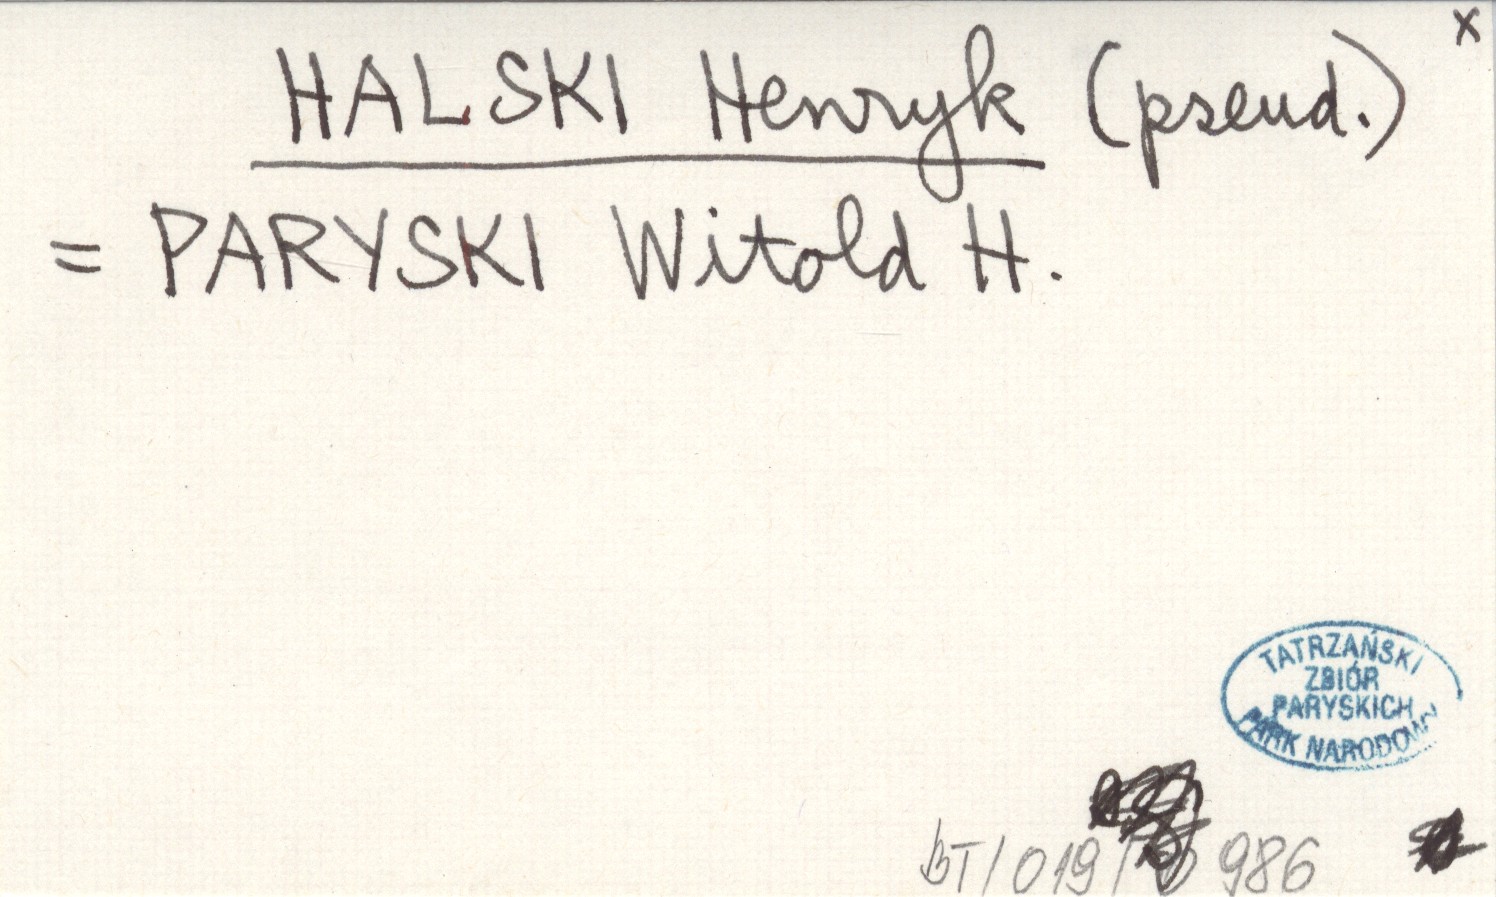 x
HALSKI Henryk (pseud.)
= PARYSKI Witold H.
TATRZAŃSKI
ZBIÓR
PARYSKICH
PARK NARODOWY
BT/019/ 986